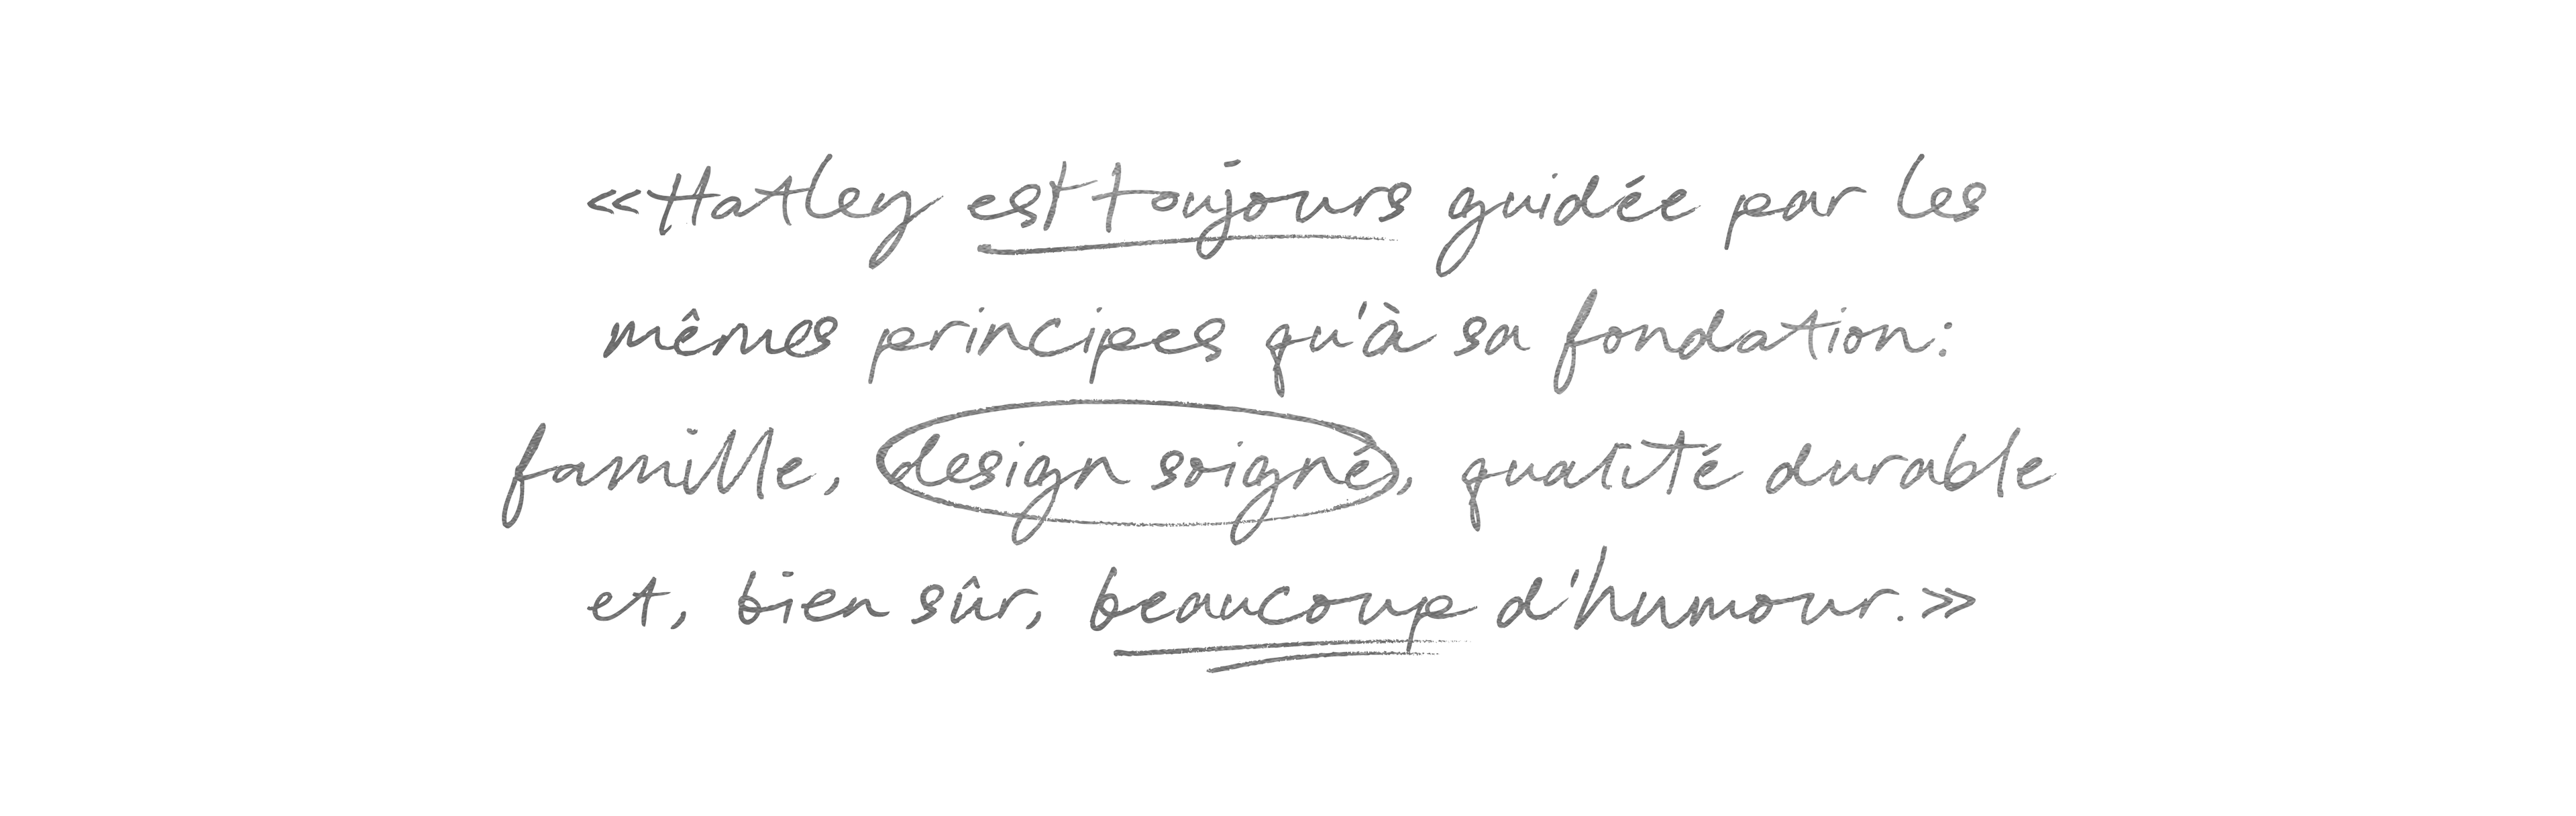 «Hatley est toujours guidée par les
mêmes principes qu'à sa fondation:
famille, design soigné, qualité durable
et, bien sûr, beaucoup d'humour.»